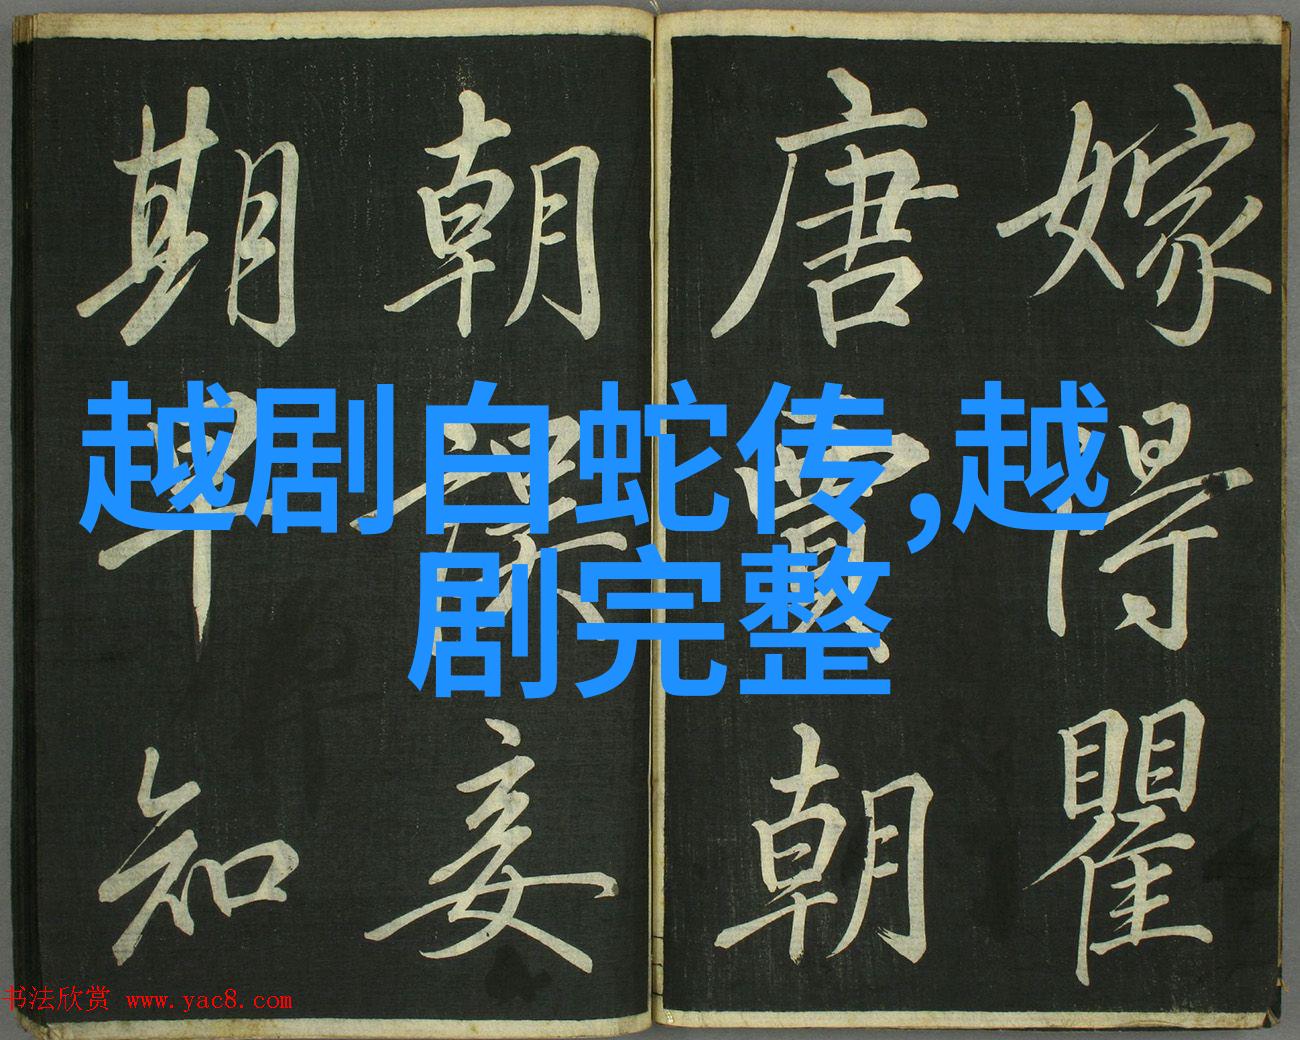 嫁得瞿
唐賈朝
朝誤妾
期早知
越剧白蛇传,越
剧完整
书法欣赏 www.yac8.com